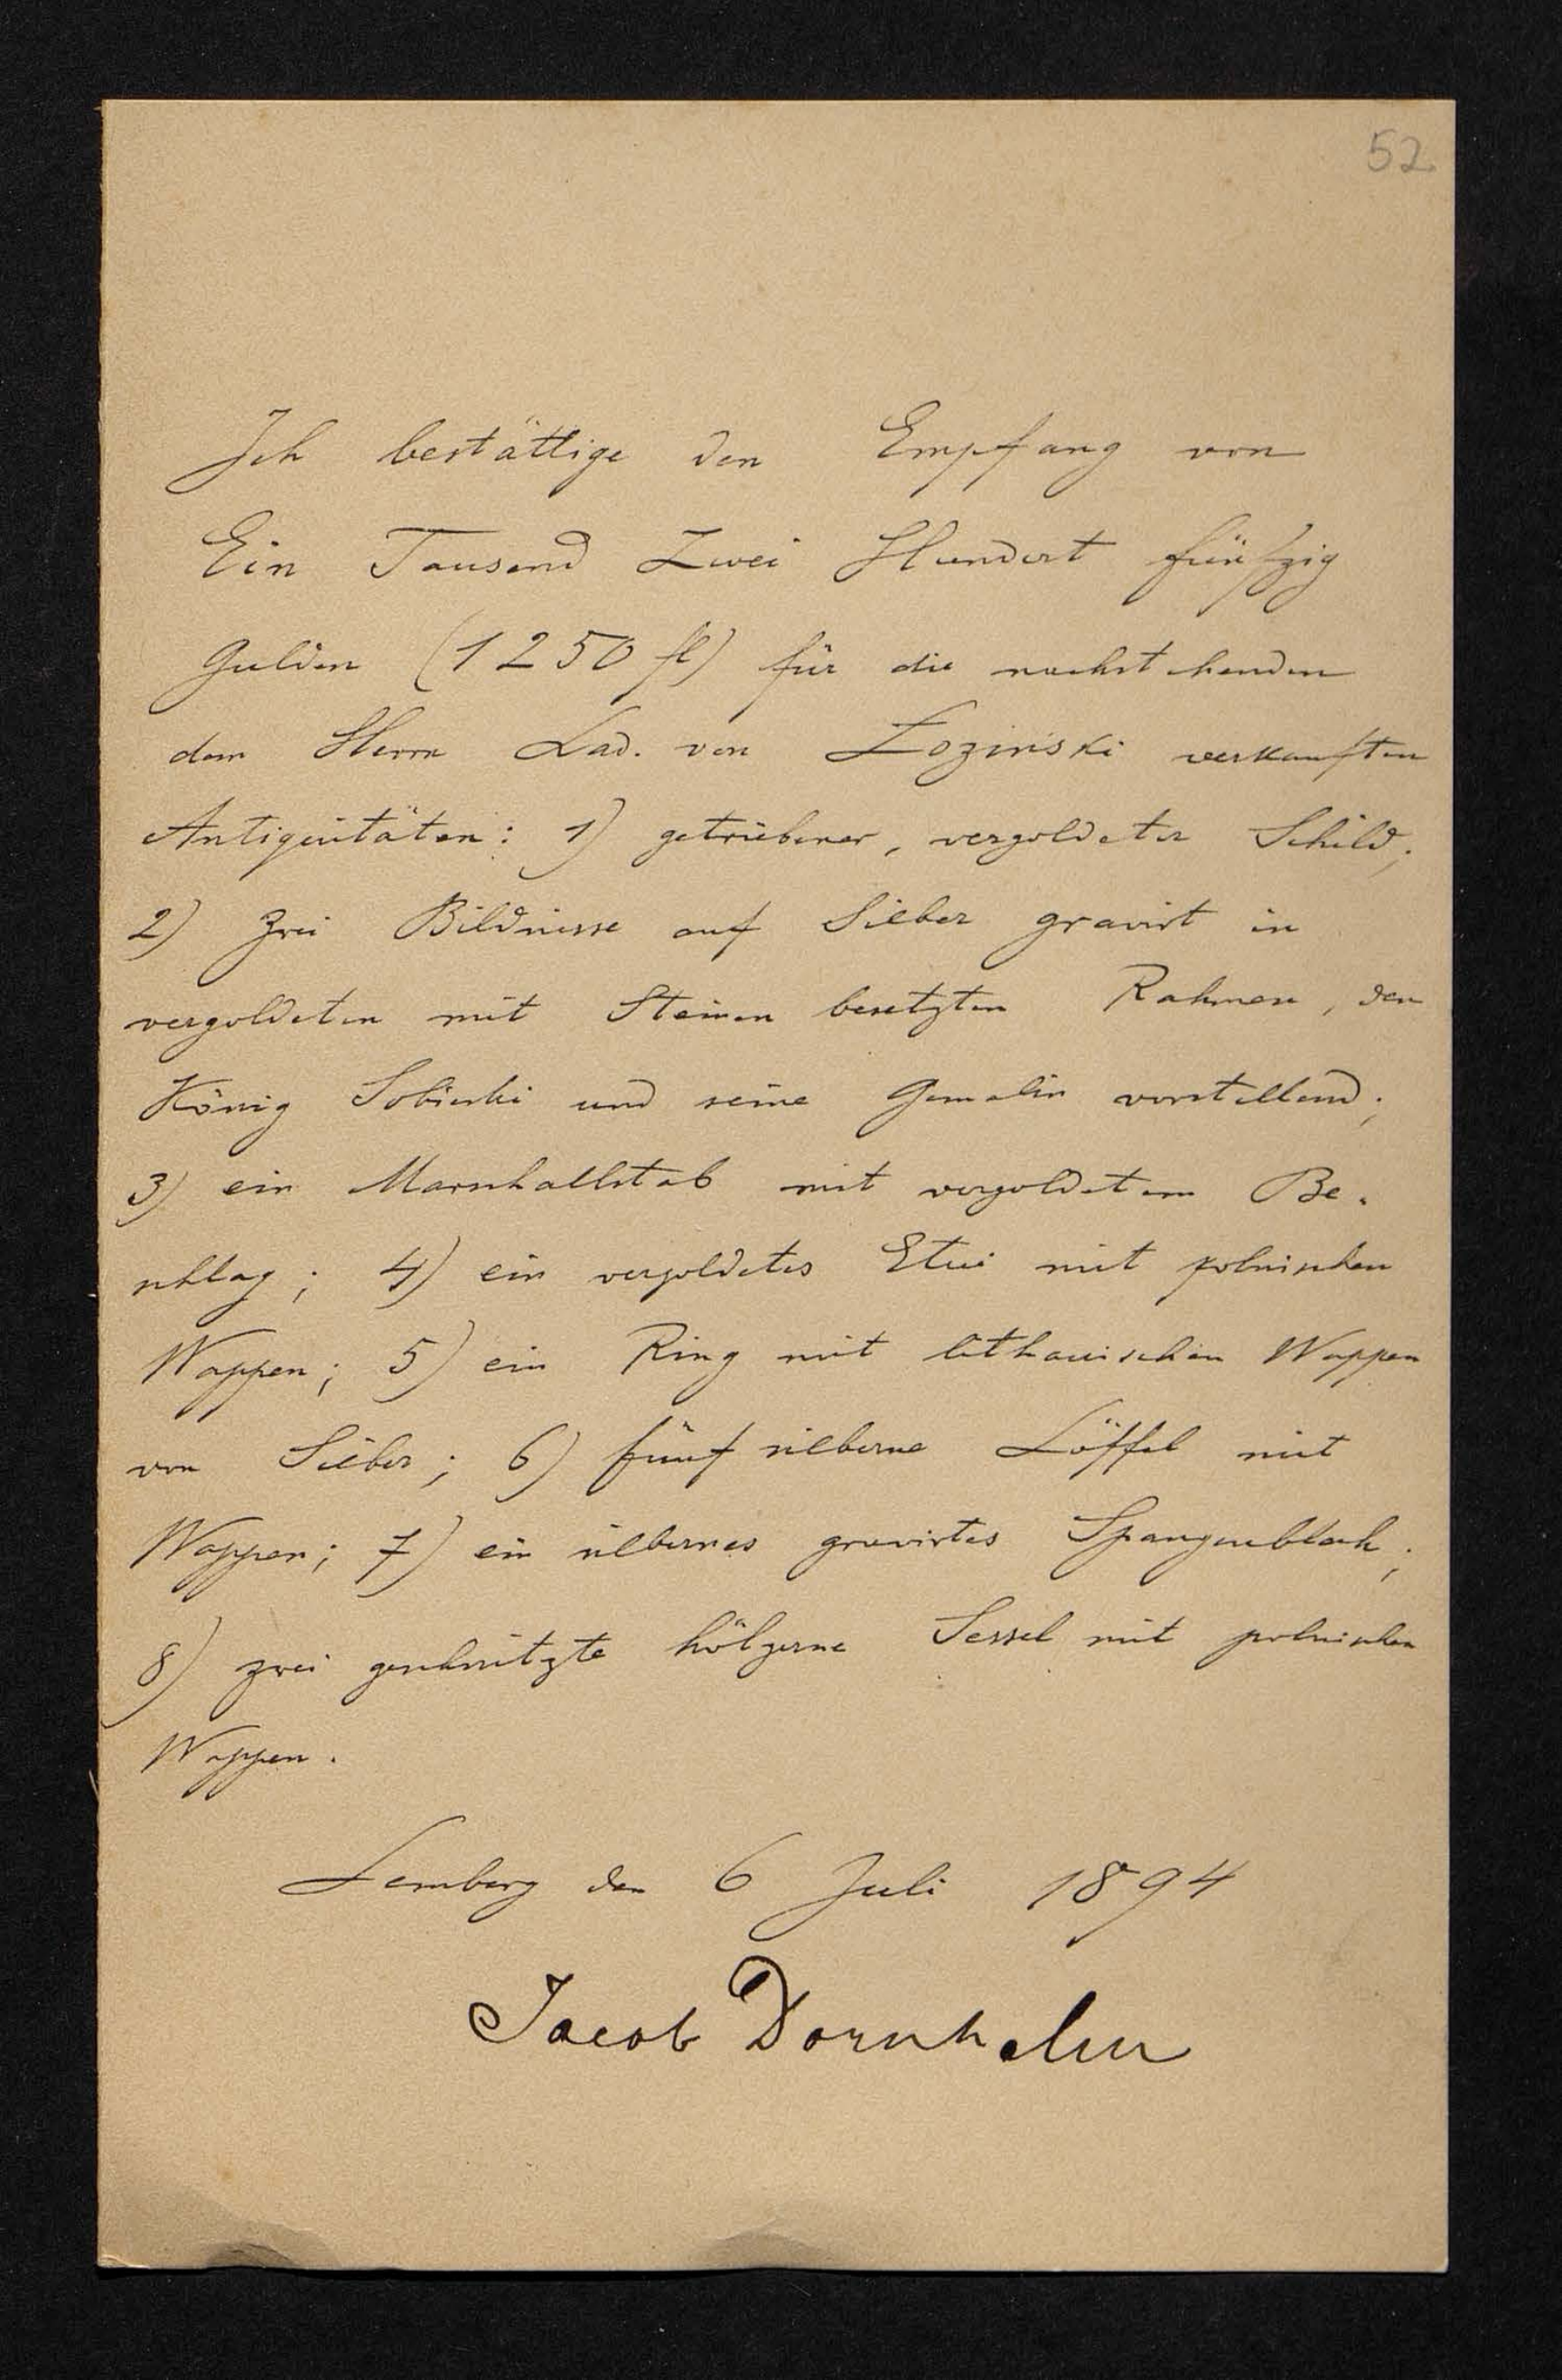 52
Ich bestättige den Empfang von
Ein Tausend Zwei Hundert fünfzig
Gulden (1250 fl) für die nachstehenden
dem Herrn Lad. von Łoziński verkauften
Antiquitäten: 1) getriebener, vergoldeter Schild;
2) zwei Bildnisse auf Silber gravirt in
vergoldeten mit Steinen besetzten Rahmen, den
König Sobieski und seine Gemalin vorstellend;
3) ein Marschallstab mit vergoldetem Be-
schlag; 4) ein vergoldetes Etui mit polnischen
Wappen; 5) ein Ring mit lithauischen Wappen
von Silber; 6) fünf silberne Löffel mit
Wappen; 7) ein silbernes gravirtes Spangenblech;
8) zwei geschnitzte hölzerne Sessel mit polnischen
Wappen.
Lemberg den 6 Juli 1894
Jacob Dornhelm